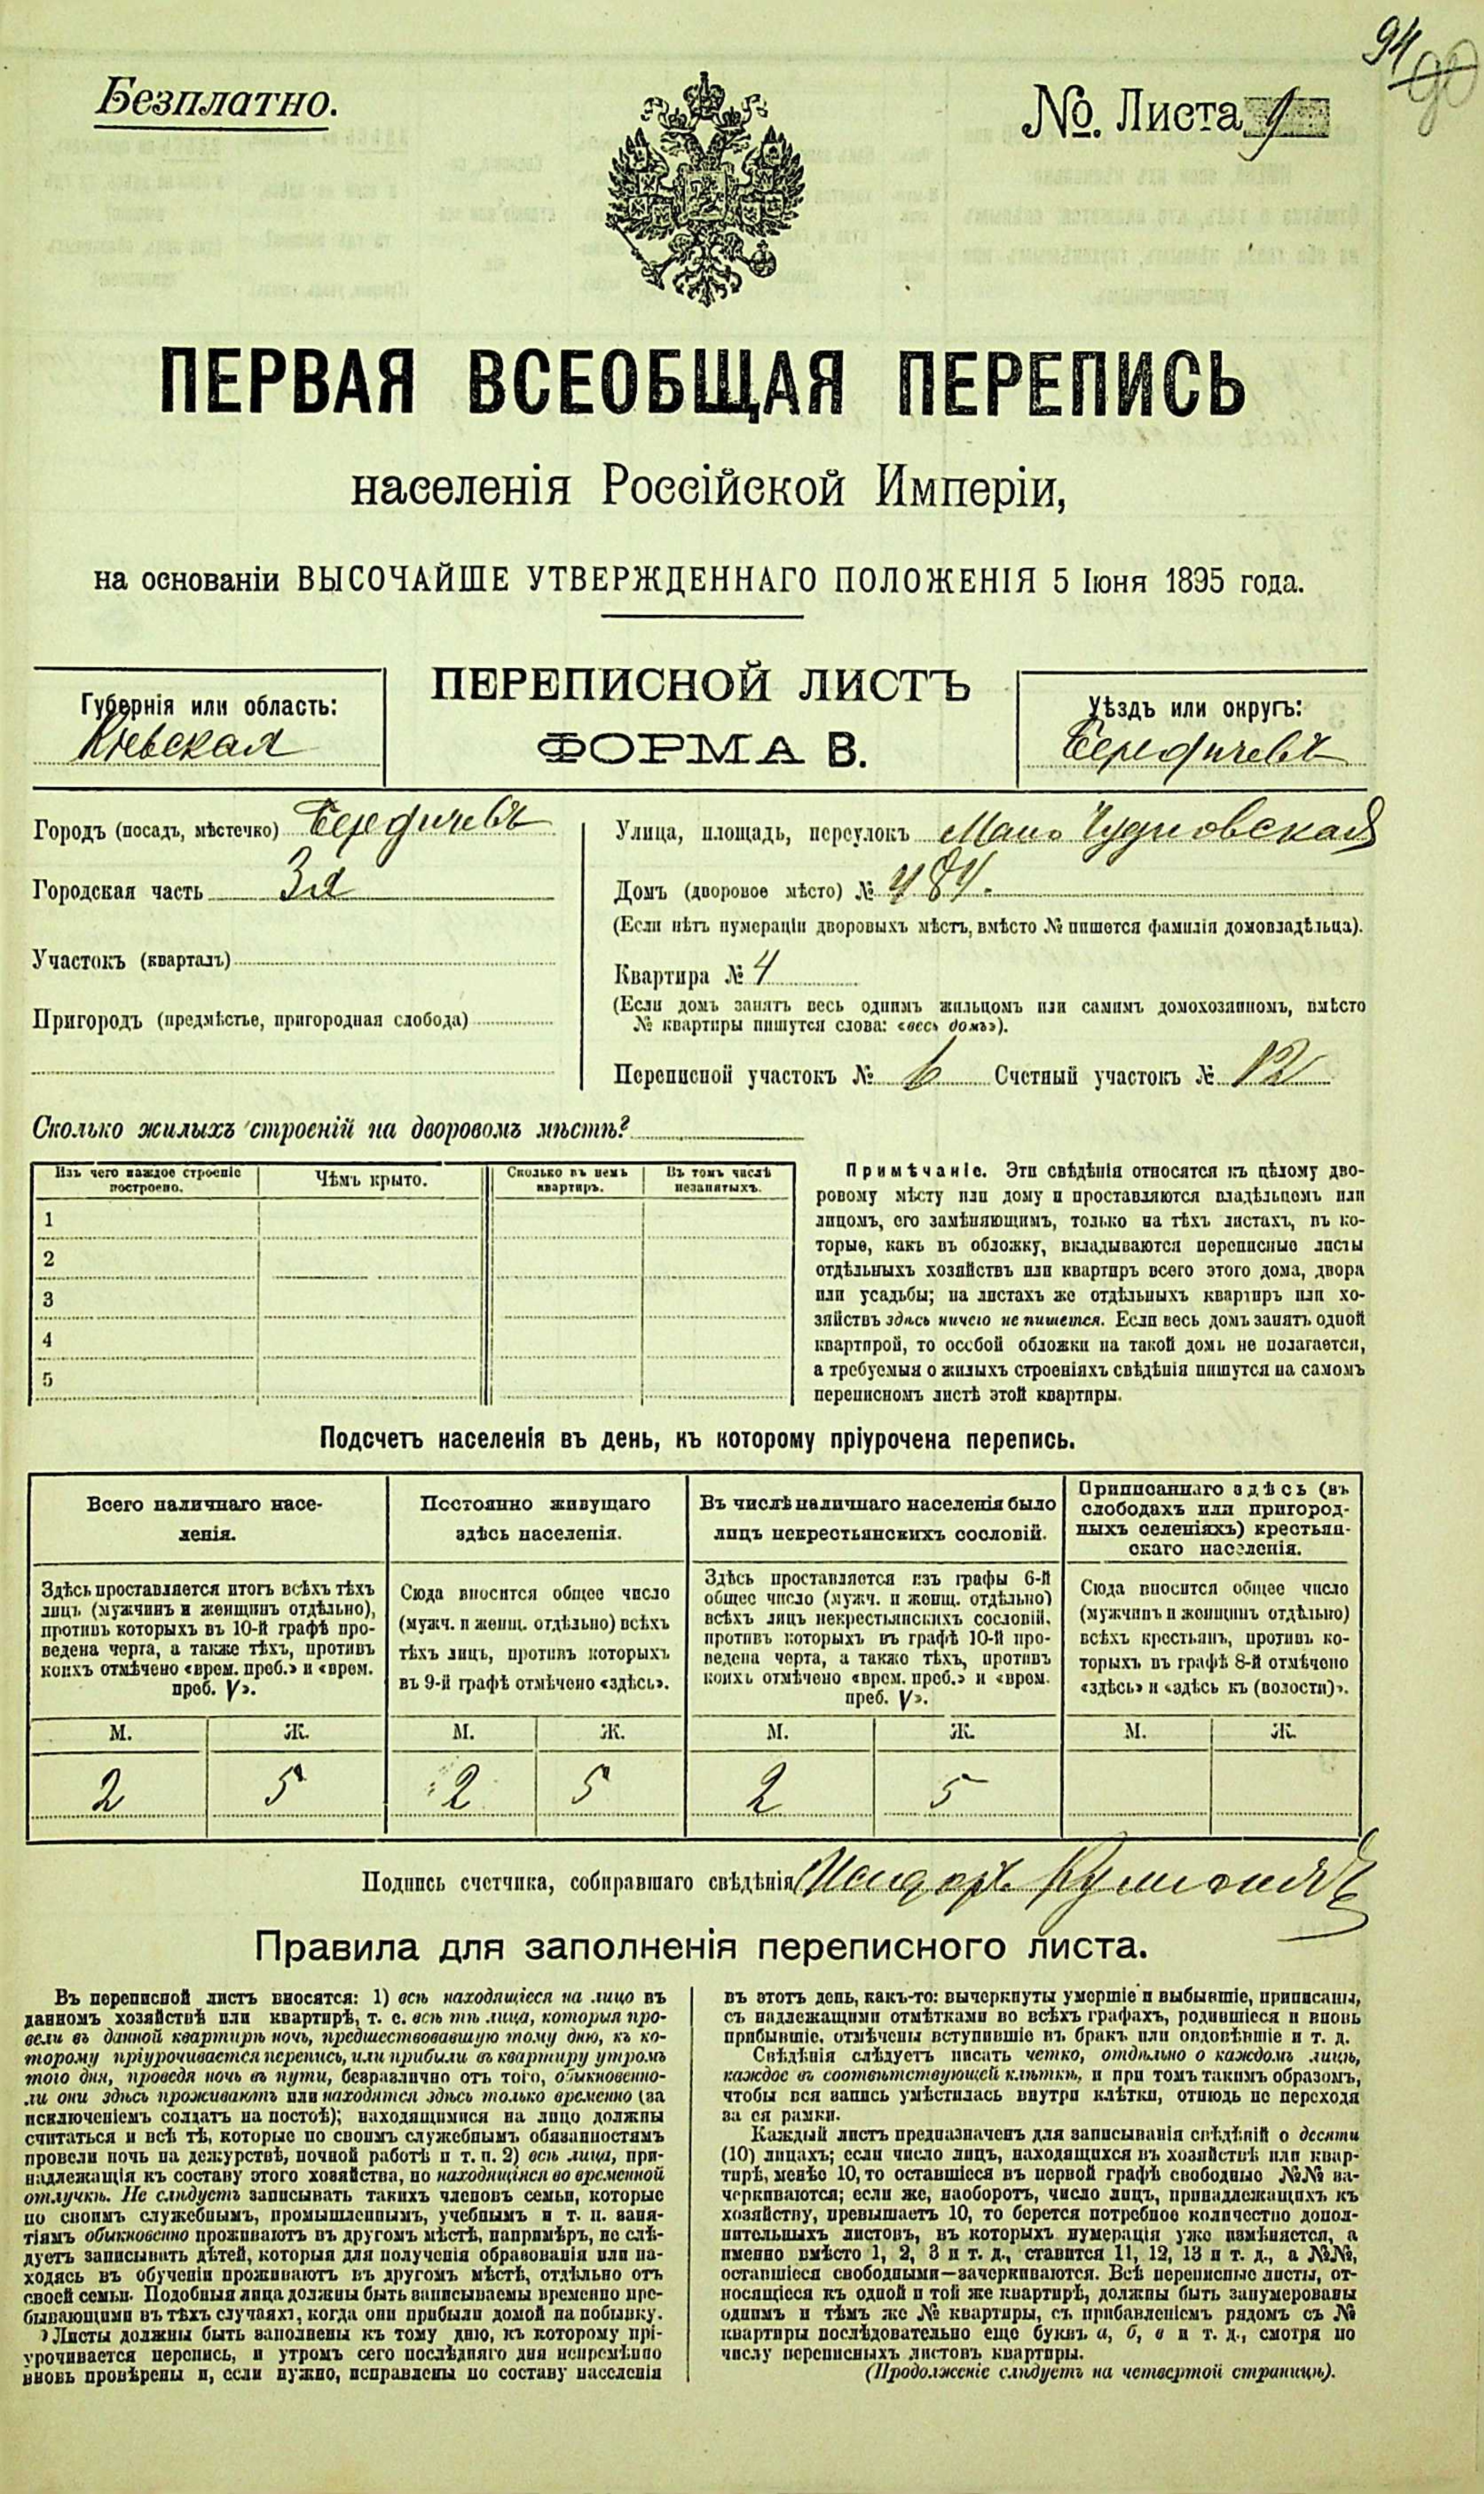 94
90
Безплатно.
№. Листа 9
ПЕРВАЯ ВСЕОБЩАЯ ПЕРЕПИСЬ
населенія Россійской Имперіи,
на основаніи ВЫСОЧАЙШЕ УТВЕРЖДЕННАГО ПОЛОЖЕНІЯ 5 Іюня 1895 года.
Губернія или область:
Кіевская
ПЕРЕПИСНОЙ ЛИСТЪ
ФОРМА В.
Уѣздъ или округъ:
Бердичевъ
Городъ (посадъ, мѣстечко) Бердичевъ
Городская часть 3я
Участокъ (кварталъ)
Пригородъ (предмѣстье, пригородная слобода)
Улица, площадь, переулокъ Мало Чудновская
Домъ (дворовое мѣсто) № 484.
(Если нѣтъ нумераціи дворовыхъ мѣстъ, вмѣсто № пишется фамилія домовладѣльца).
Квартира № 4
(Если домъ занятъ весь однимъ жильцомъ или самимъ домохозяиномъ, вмѣсто
№ квартиры пишутся слова: «весь домъ»).
Переписной участокъ № 6 Счетный участокъ № 12
Сколько жилыхъ строеній на дворовомъ мѣстѣ?
Изъ чего каждое строеніе
построено.
Чѣмъ крыто.
Сколько въ немъ
квартиръ.
Въ томъ числѣ
незанятыхъ.
1
2
3
4
5
Примѣчаніе. Эти свѣдѣнія относятся къ цѣлому дво-
ровому мѣсту или дому и проставляются владѣльцемъ или
лицомъ, его замѣняющимъ, только на тѣхъ листахъ, въ ко-
торые, какъ въ обложку, вкладываются переписные листы
отдѣльныхъ хозяйствъ или квартиръ всего этого дома, двора
или усадьбы; на листахъ же отдѣльныхъ квартиръ или хо-
зяйствъ здѣсь ничего не пишется. Если весь домъ занятъ одной
квартирой, то особой обложки на такой домъ не полагается,
а требуемыя о жилыхъ строеніяхъ свѣдѣнія пишутся на самомъ
переписномъ листѣ этой квартиры.
Подсчетъ населенія въ день, къ которому пріурочена перепись.
Всего наличнаго насе-
ленія.
Постоянно живущаго
здѣсь населенія.
Въ числѣ наличнаго населенія было
лицъ некрестьянскихъ сословій.
Приписаннаго здѣсь (въ
слободахъ или пригород-
ныхъ селеніяхъ) крестьян-
скаго населенія.
Здѣсь проставляется итогъ всѣхъ тѣхъ
лицъ (мужчинъ и женщинъ отдѣльно),
противъ которыхъ въ 10-й графѣ про-
ведена черта, а также тѣхъ, противъ
коихъ отмѣчено «врем. преб.» и «врем.
преб. V».
Сюда вносится общее число
(мужч. и женщ. отдѣльно) всѣхъ
тѣхъ лицъ, противъ которыхъ
въ 9-й графѣ отмѣчено «здѣсь».
Здѣсь проставляется изъ графы 6-й
общее число (мужч. и женщ. отдѣльно)
всѣхъ лицъ некрестьянскихъ сословій,
противъ которыхъ въ графѣ 10-й про-
ведена черта, а также тѣхъ, противъ
коихъ отмѣчено «врем. преб.» и «врем.
преб. V».
Сюда вносится общее число
(мужчинъ и женщинъ отдѣльно)
всѣхъ крестьянъ, противъ ко-
торыхъ въ графѣ 8-й отмѣчено
«здѣсь» и «здѣсь къ (волости)».
М. Ж. М. Ж. М. Ж. М. Ж.
2 5 2 5 2 5
Подпись счетчика, собиравшаго свѣдѣнія
Правила для заполненія переписного листа.
Въ переписной листъ вносятся: 1) всѣ находящіеся на лицо въ
данномъ хозяйствѣ или квартирѣ, т. е. всѣ тѣ лица, которыя про-
вели въ данной квартирѣ ночь, предшествовавшую тому дню, къ ко-
торому пріурочивается перепись, или прибыли въ квартиру утромъ
того дня, проведя ночь въ пути, безразлично отъ того, обыкновенно-
ли они здѣсь проживаютъ или находятся здѣсь только временно (за
исключеніемъ солдатъ на постоѣ); находящимися на лицо должны
считаться и всѣ тѣ, которые по своимъ служебнымъ обязанностямъ
провели ночь на дежурствѣ, ночной работѣ и т. п. 2) всѣ лица, при-
надлежащія къ составу этого хозяйства, но находящіяся во временной
отлучкѣ. Не слѣдуетъ записывать такихъ членовъ семьи, которые
по своимъ служебнымъ, промышленнымъ, учебнымъ и т. п. заня-
тіямъ обыкновенно проживаютъ въ другомъ мѣстѣ, напримѣръ, не слѣ-
дуетъ записывать дѣтей, которыя для полученія образованія или на-
ходясь въ обученіи проживаютъ въ другомъ мѣстѣ, отдѣльно отъ
своей семьи. Подобныя лица должны быть записываемы временно пре-
бывающими въ тѣхъ случаяхъ, когда они прибыли домой на побывку.
Листы должны быть заполнены къ тому дню, къ которому прі-
урочивается перепись, и утромъ сего послѣдняго дня непремѣнно
вновь провѣрены и, если нужно, исправлены по составу населенія
въ этотъ день, какъ-то: вычеркнуты умершіе и выбывшіе, приписаны,
съ надлежащими отмѣтками во всѣхъ графахъ, родившіеся и вновь
прибывшіе, отмѣчены вступившіе въ бракъ или овдовѣвшіе и т. д.
Свѣдѣнія слѣдуетъ писать четко, отдѣльно о каждомъ лицѣ,
каждое въ соотвѣтствующей клѣткѣ, и при томъ такимъ образомъ,
чтобы вся запись умѣстилась внутри клѣтки, отнюдь не переходя
за ея рамки.
Каждый листъ предназначенъ для записыванія свѣдѣній о десяти
(10) лицахъ; если число лицъ, находящихся въ хозяйствѣ или квар-
тирѣ, менѣе 10, то оставшіеся въ первой графѣ свободные №№ за-
черкиваются; если же, наоборотъ, число лицъ, принадлежащихъ къ
хозяйству, превышаетъ 10, то берется потребное количество допол-
нительныхъ листовъ, въ которыхъ нумерація уже измѣняется, а
именно вмѣсто 1, 2, 3 и т. д., ставится 11, 12, 13 и т. д., а №№,
оставшіеся свободными—зачеркиваются. Всѣ переписные листы, от-
носящіеся къ одной и той же квартирѣ, должны быть занумерованы
однимъ и тѣмъ же № квартиры, съ прибавленіемъ рядомъ съ №
квартиры послѣдовательно еще буквъ а, б, в и т. д., смотря по
числу переписныхъ листовъ квартиры.
(Продолженіе слѣдуетъ на четвертой страницѣ).